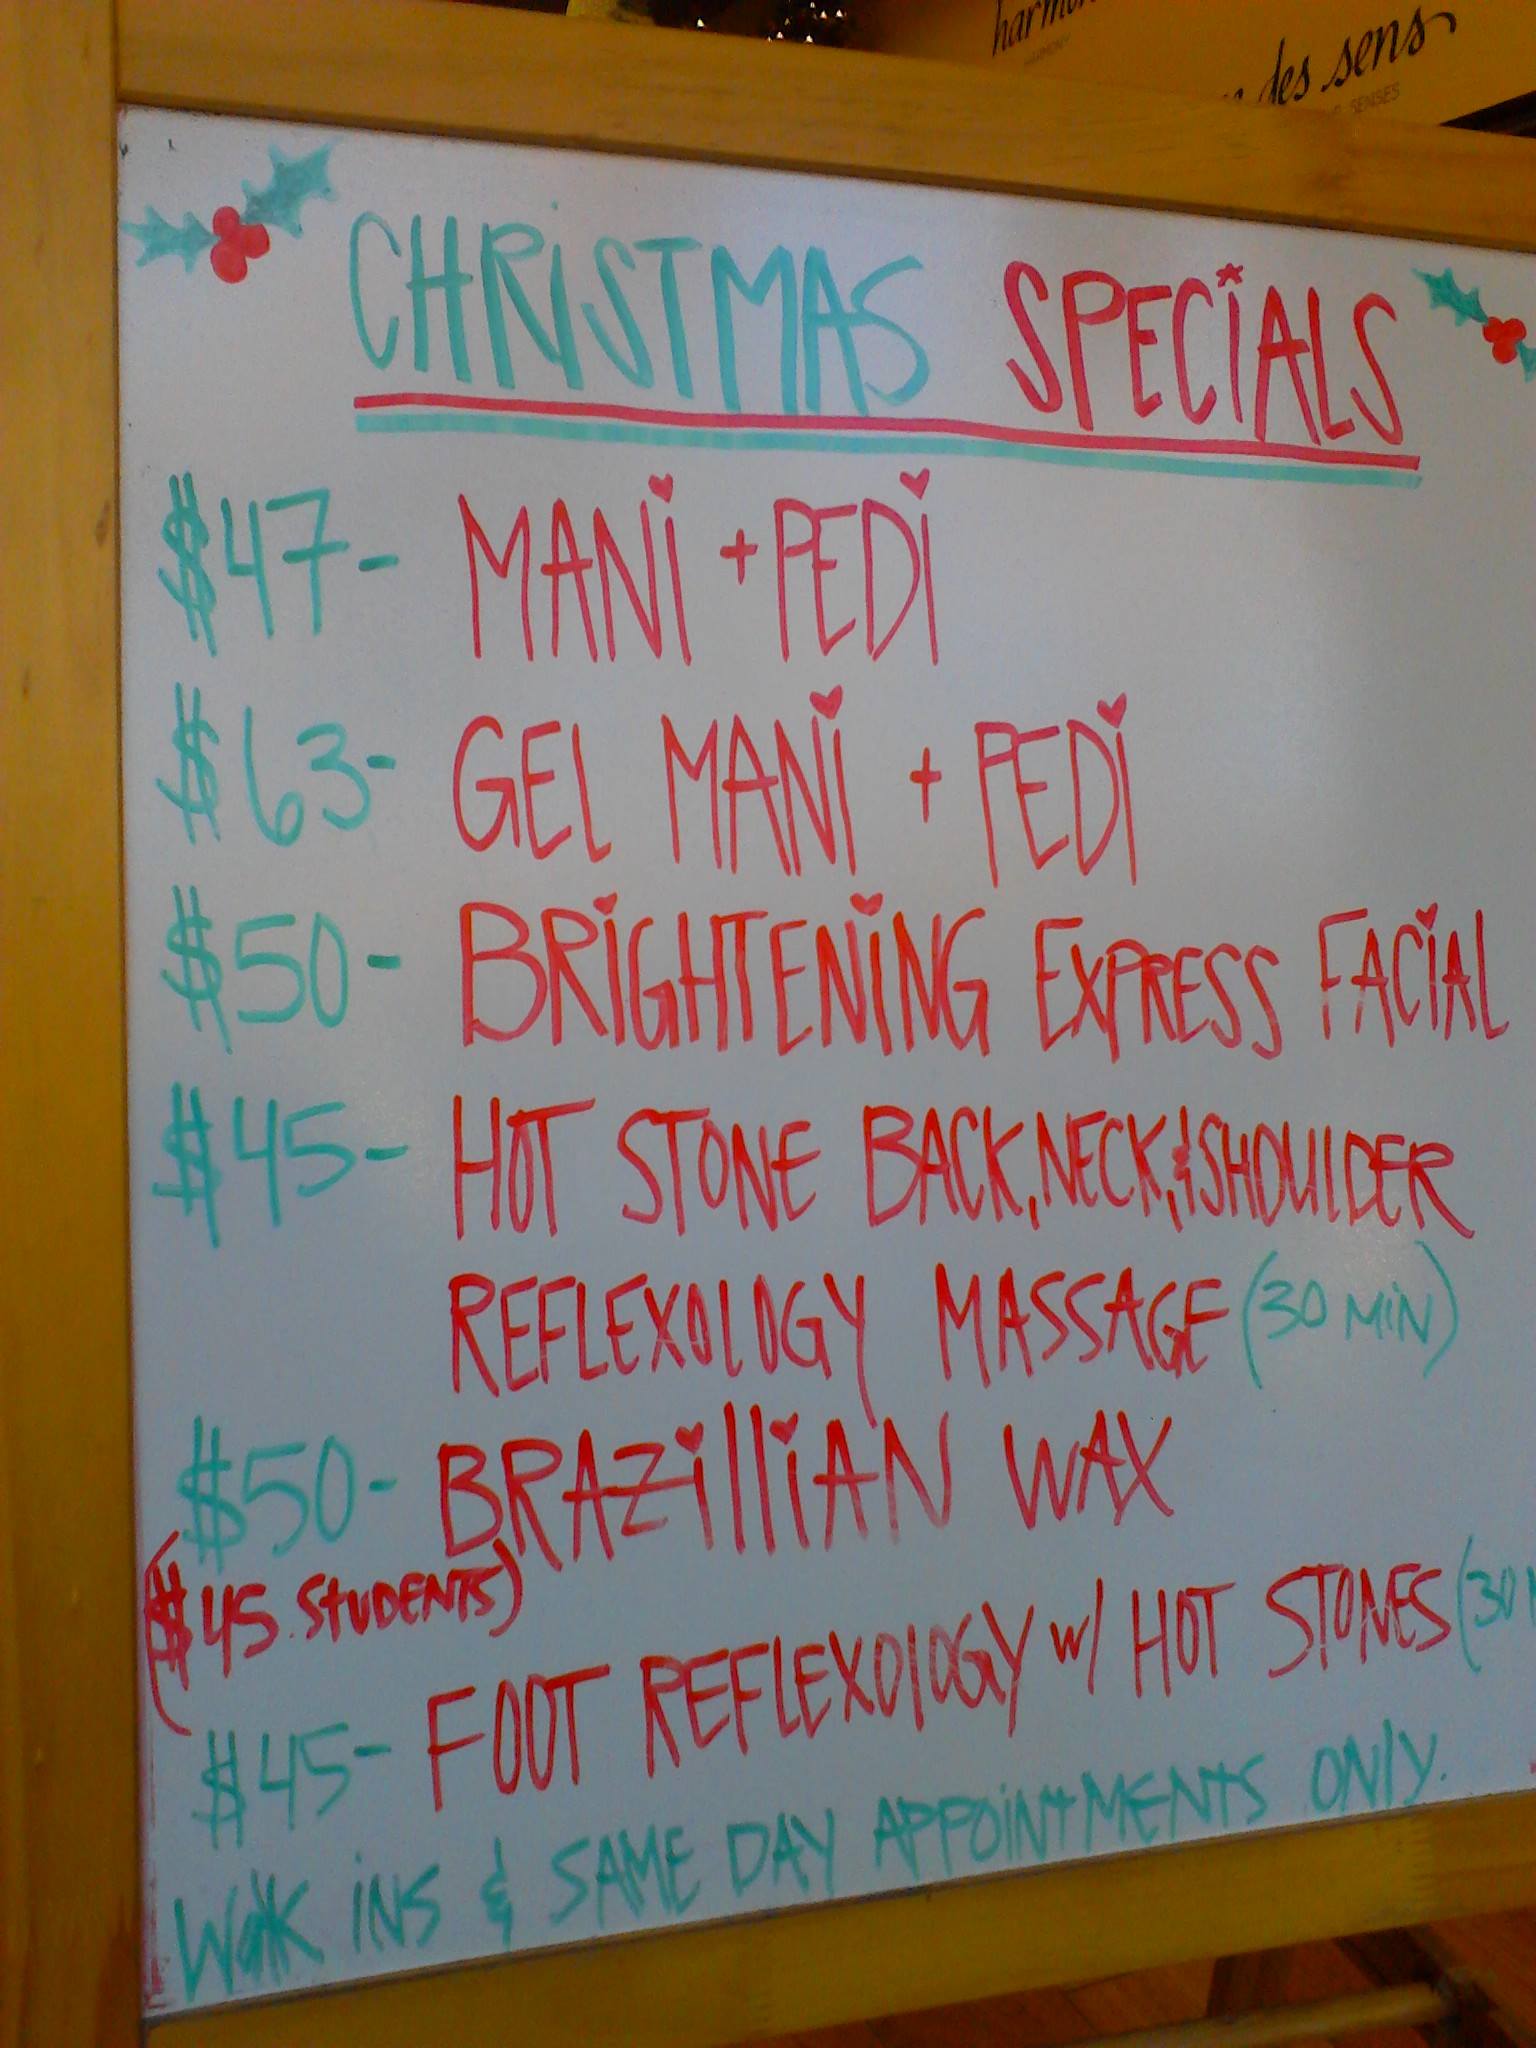 harmon
HARMONY
des sens
SENSES
CHRISTMAS SPECIALS
$47- MANI + PEDI
$63- GEL MANI + PEDI
$50- BRIGHTENING EXPRESS FACIAL
$45- HOT STONE BACK, NECK, & SHOULDER
REFLEXOLOGY MASSAGE (30 MIN)
$50- BRAZILLIAN WAX
($45 STUDENTS)
$45- FOOT REFLEXOLOGY w/ HOT STONES (30 M
WALK INS & SAME DAY APPOINTMENTS ONLY.